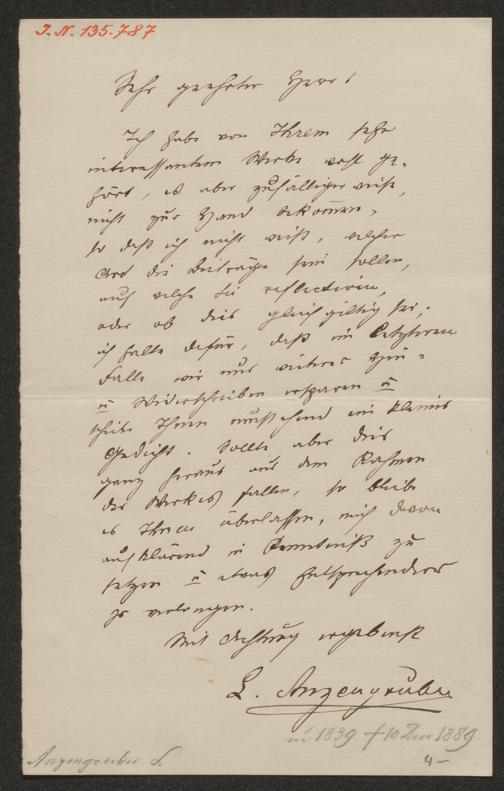 I. N. 135.787
Sehr geehrter Herr!
Ich habe von Ihrem sehr
interessanten Werke wohl ge-
hört, es aber zufälliger weise,
nicht zur Hand bekommen,
so daß ich nicht weiß, welcher
Art die Beiträge sein sollen,
auf welche Sie reflectiren,
oder ob dies gleichgiltig sei;
ich halte dafür, daß im Letzteren
Falle wir uns weiteres Hin-
u Widerschreiben ersparen u
schicke Ihnen ein kleines
Gedicht. Sollte aber dies
ganz heraus aus dem Rahmen
des Werkes fallen, so bleibe
es Ihnen überlassen, mich davon
aufklärend in Kenntniß zu
setzen u etwas Entsprechenderes
zu verlangen.
Mit Achtung ergebenst
L. Anzengruber
1839 † 10 Dez 1889
Anzengruber L
4-